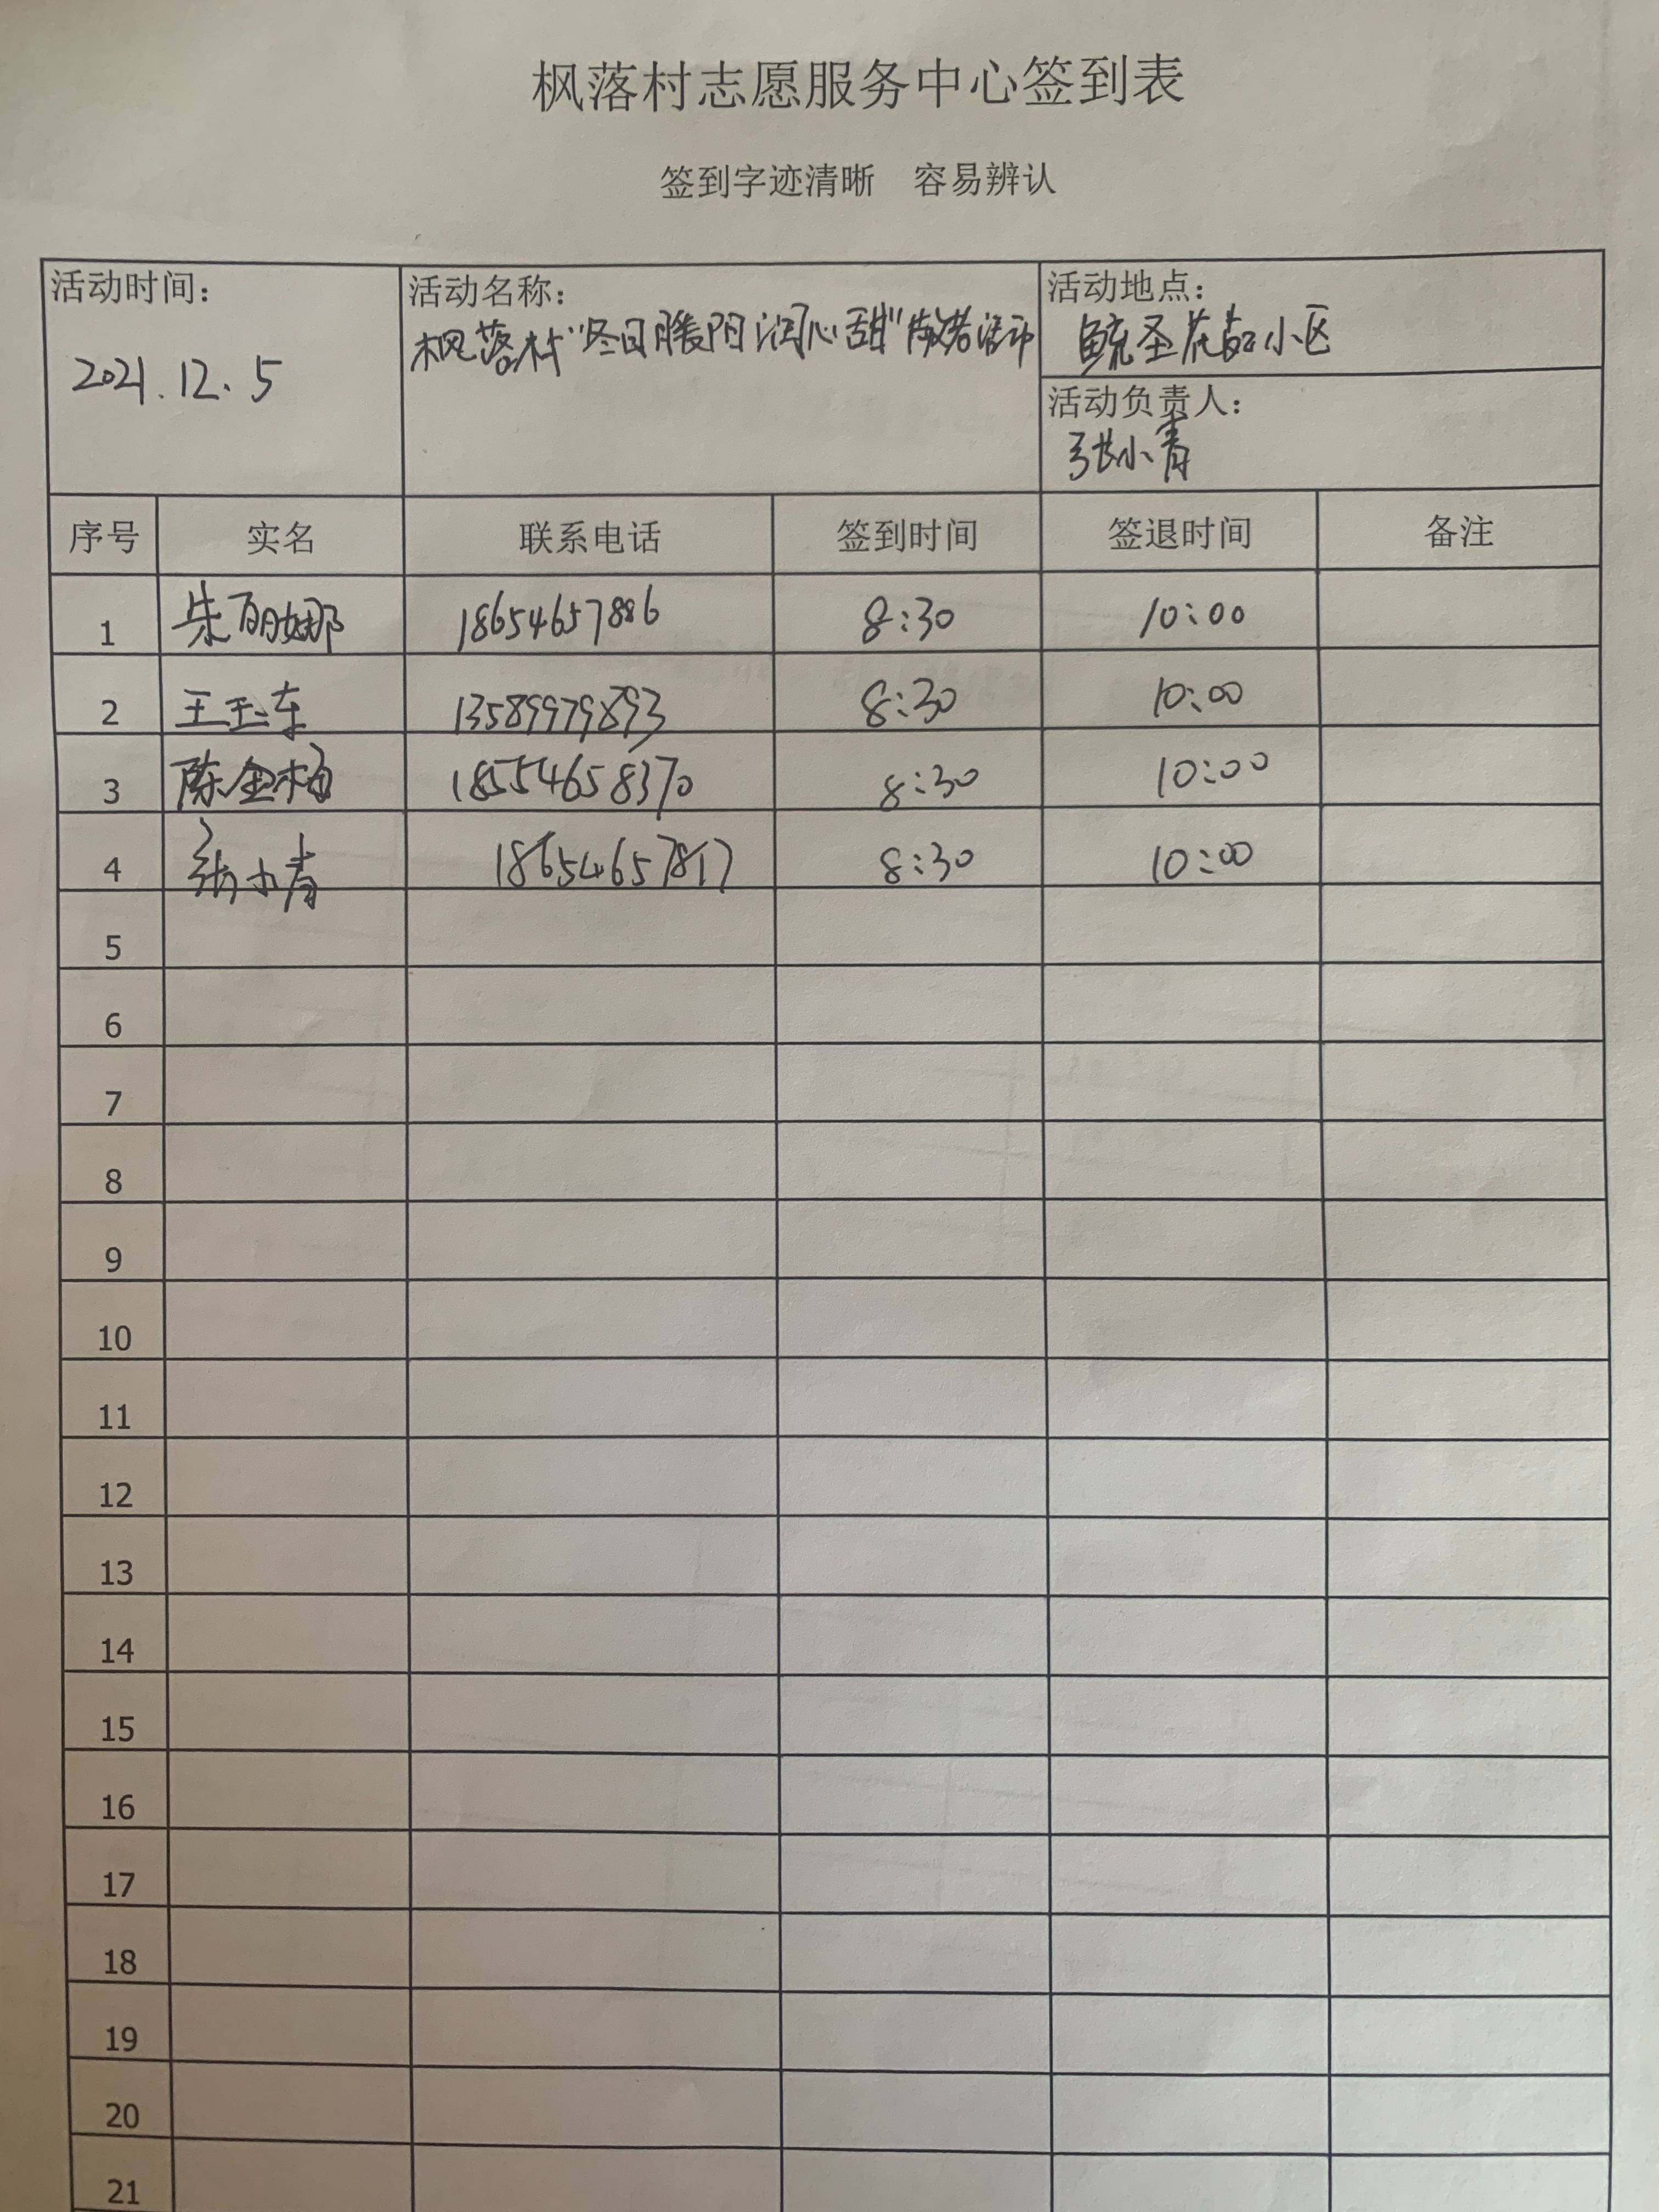 枫落村志愿服务中心签到表
签到字迹清晰 容易辨认
活动时间：
2021.12.5
活动名称：
枫落村“冬日暖阳 润心甜”敬老活动
活动地点：
小区
活动负责人：
张小青
序号 实名 联系电话 签到时间 签退时间 备注
1 朱丽娜 18654657886 8:30 10:00
2 王玉东 13589979893 8:30 10:00
3 陈金梅 18554658370 8:30 10:00
4 张小青 18654657817 8:30 10:00
5
6
7
8
9
10
11
12
13
14
15
16
17
18
19
20
21